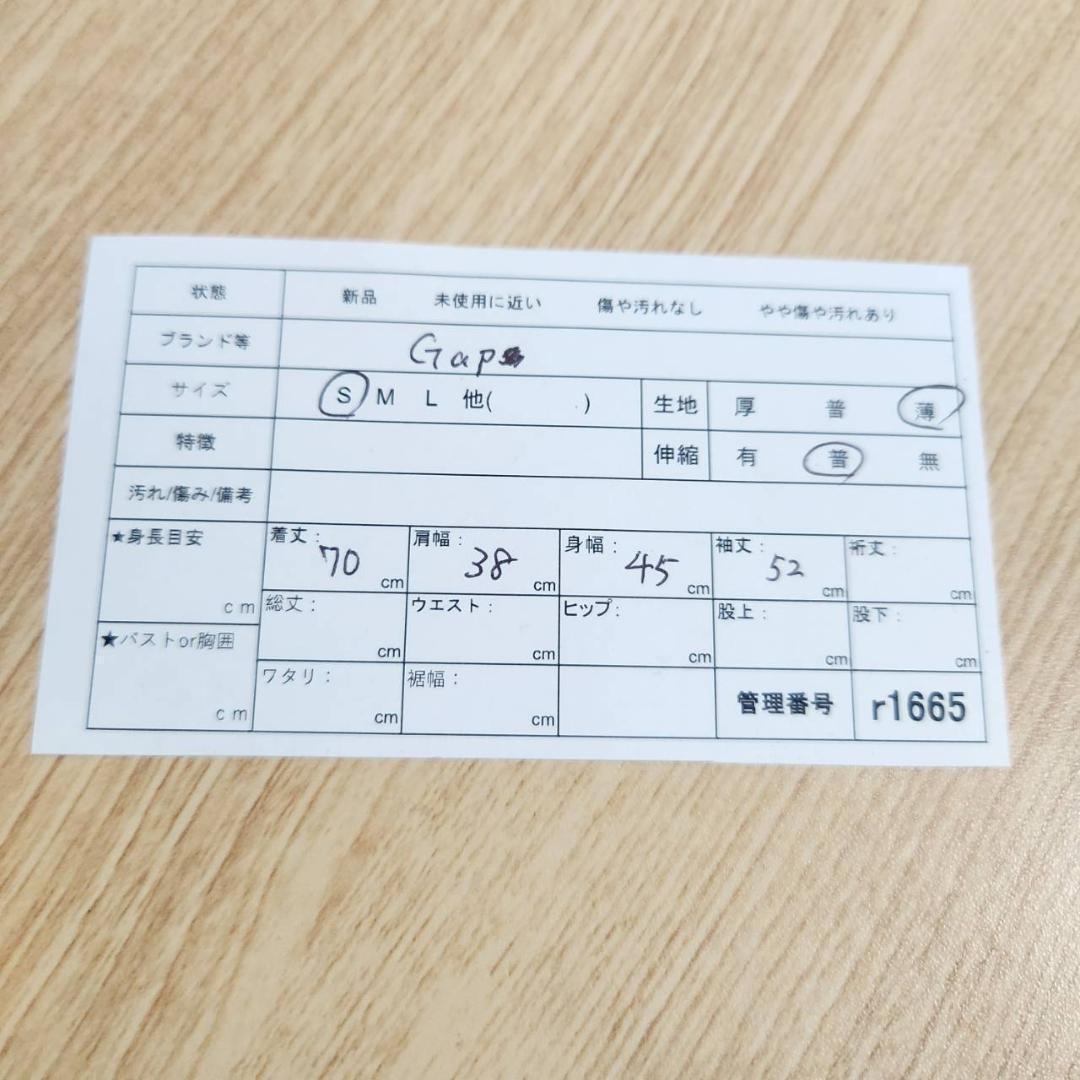 状態 新品 未使用に近い 傷や汚れなし やや傷や汚れあり
ブランド等 Gap
サイズ S M L 他( ) 生地 厚 普 薄
特徴 伸縮 有 普 無
汚れ/傷み/備考
★身長目安 cm
着丈: 70 cm 肩幅: 38 cm 身幅: 45 cm 袖丈: 52 cm 裄丈: cm
総丈: cm ウエスト: cm ヒップ: cm 股上: cm 股下: cm
★バストor胸囲 cm
ワタリ: cm 裾幅: cm 管理番号 r1665